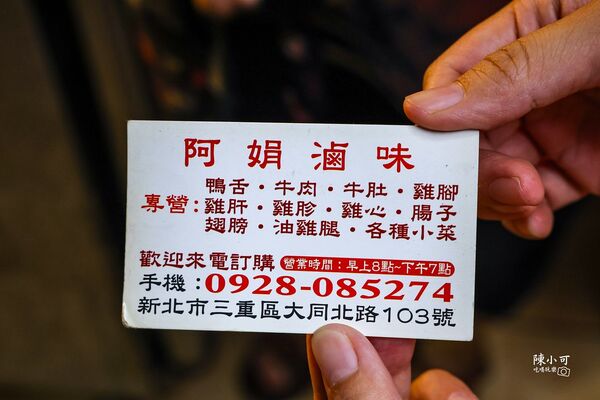 阿娟滷味
鴨舌・牛肉・牛肚・雞腳
專營:雞肝・雞胗・雞心・腸子
翅膀・油雞腿・各種小菜
歡迎來電訂購 營業時間:早上8點~下午7點
手機:0928-085274
新北市三重區大同北路103號
陳小可
吃喝玩樂